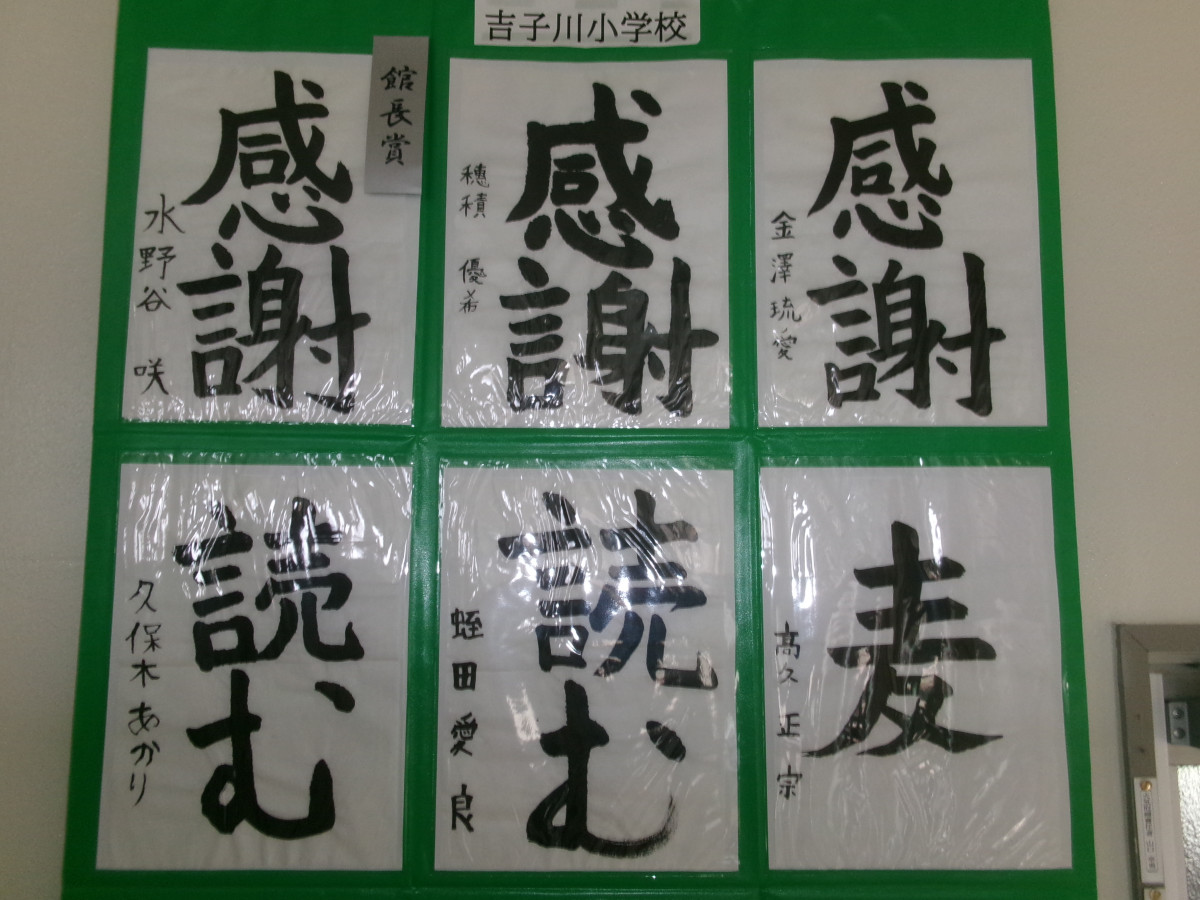 吉子川小学校
感謝
水野谷 咲
館長賞
感謝
穂積 優希
感謝
金澤琉愛
読む
久保木あかり
読む
蛭田愛良
麦
高久正宗